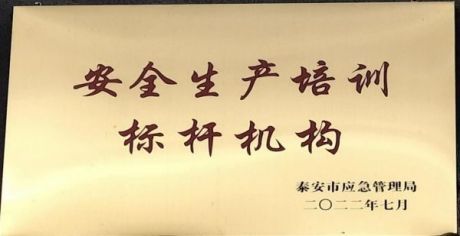 安全生产培训
标杆机构
泰安市应急管理局
二〇二二年七月